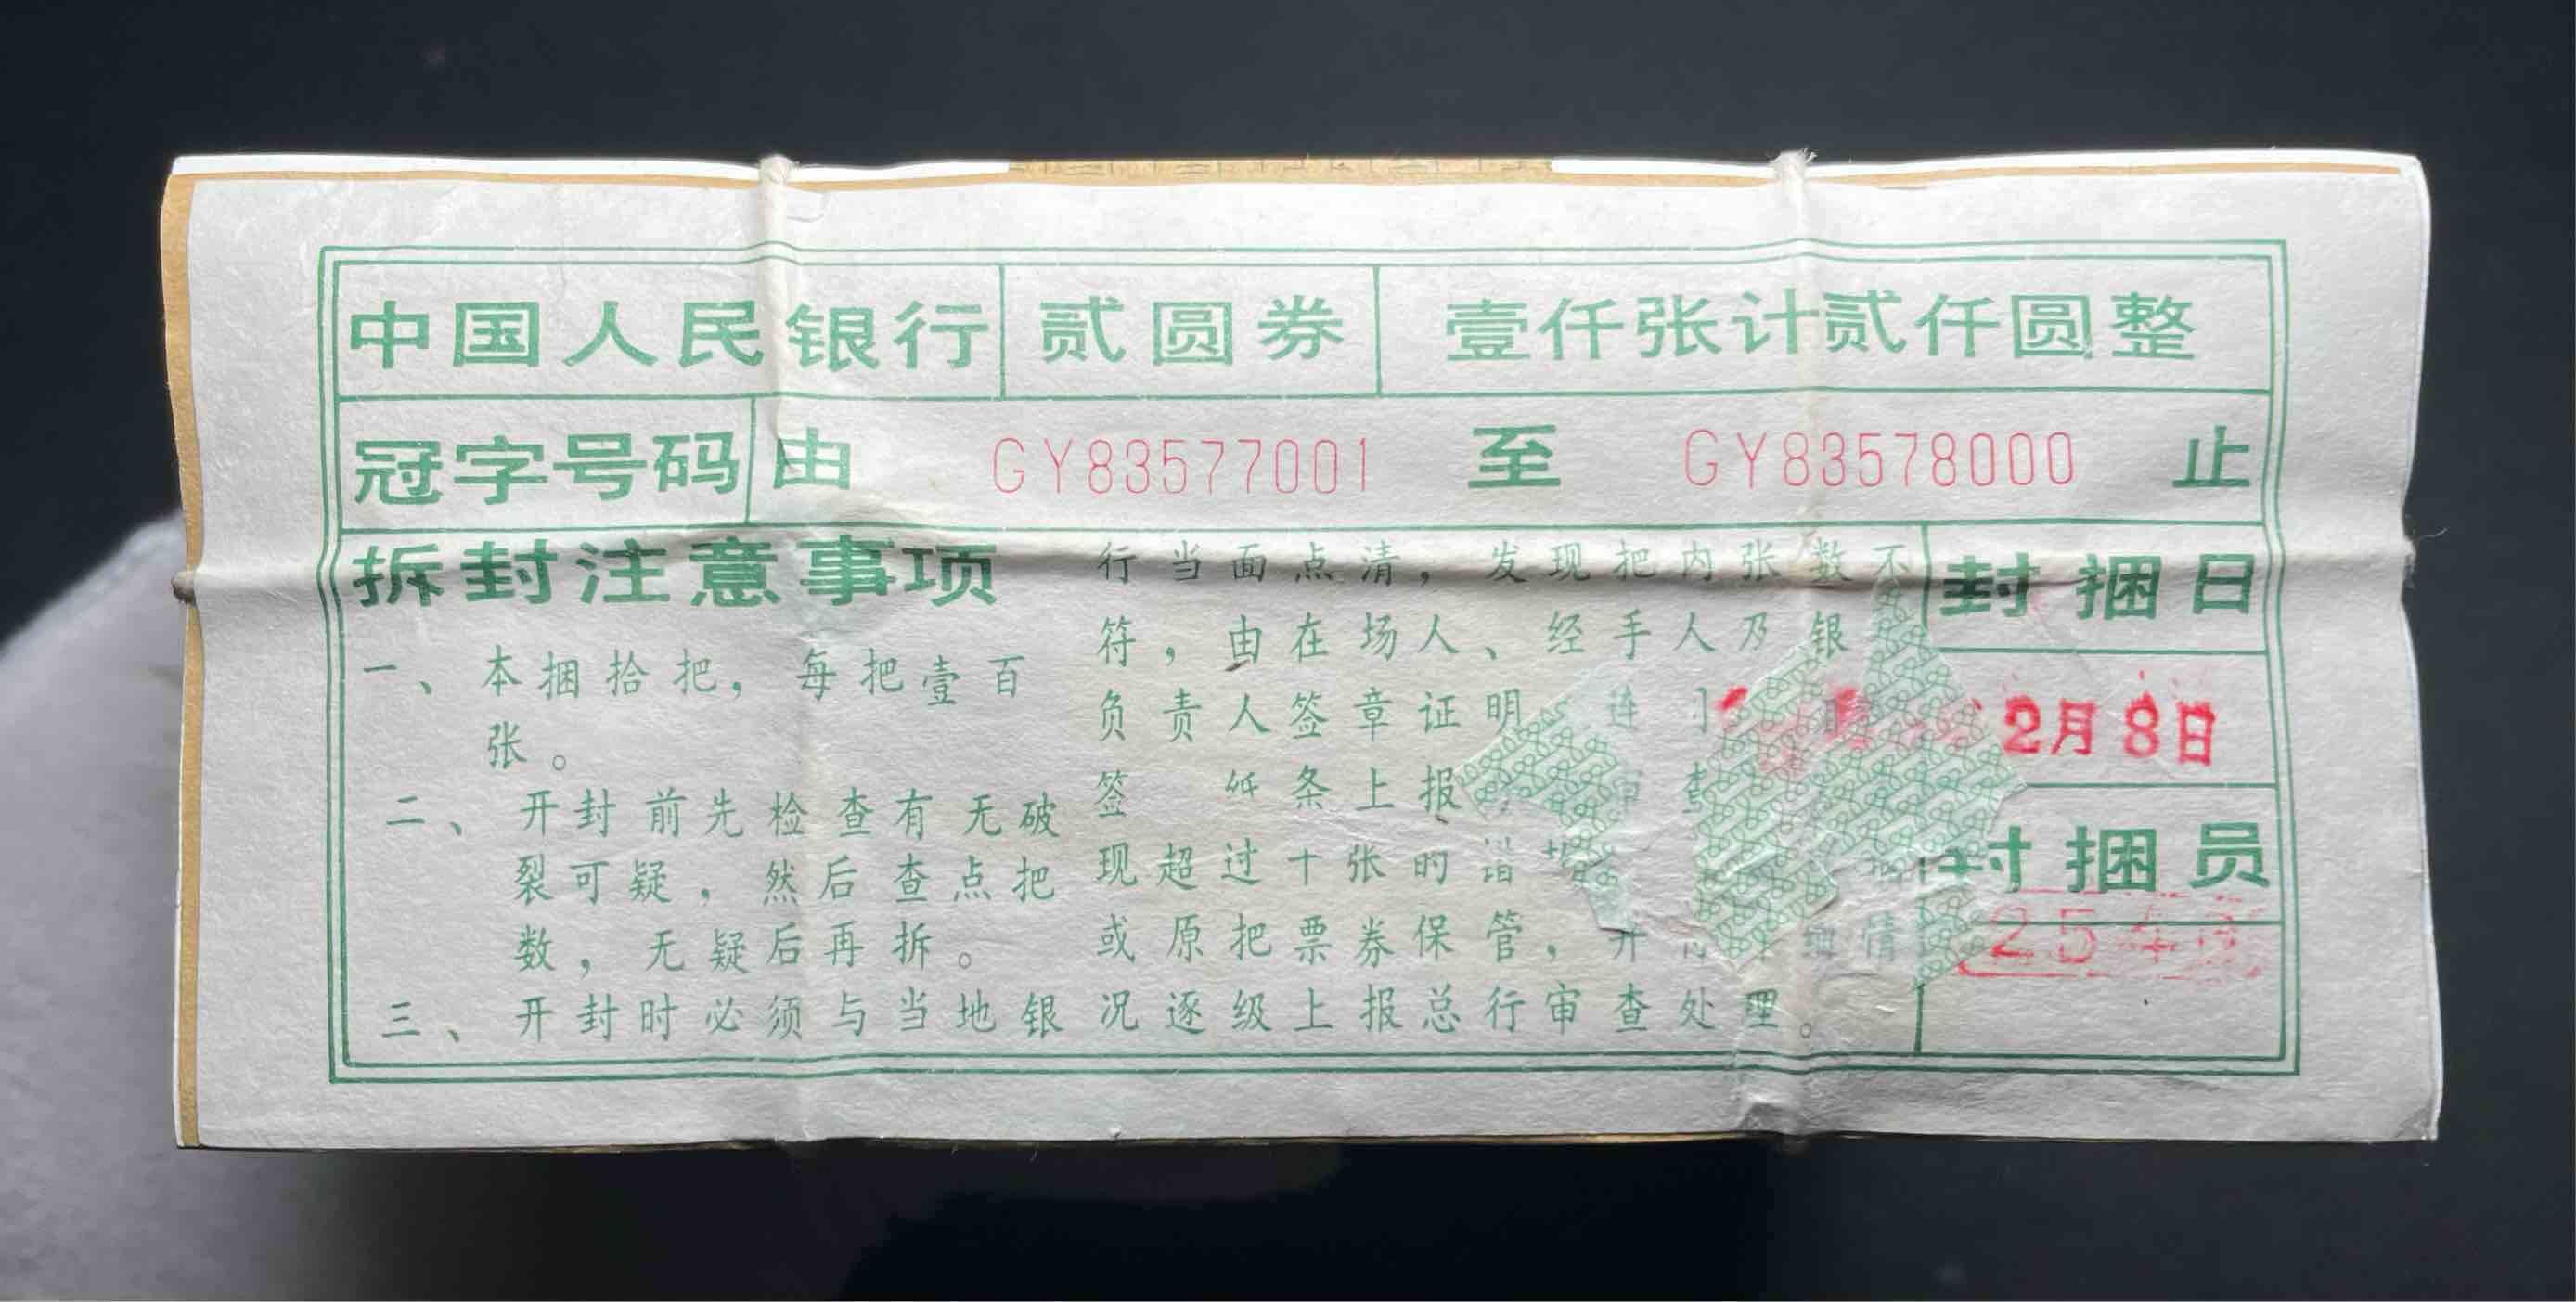 中国人民银行 贰圆券 壹仟张计贰仟圆整
冠字号码 由 GY83577001 至 GY83578000 止
拆封注意事项
一、本捆拾把，每把壹百
张。
二、开封前先检查有无破
裂可疑，然后查点把
数，无疑后再拆。
三、开封时必须与当地银
行当面点清，发现把内张数不
符，由在场人、经手人及银
负责人签章证明 连
签 纸条上报
现超过十张的
或原把票券保管， 情
况逐级上报总行审查处理。
封捆日
2月8日
封捆员
25